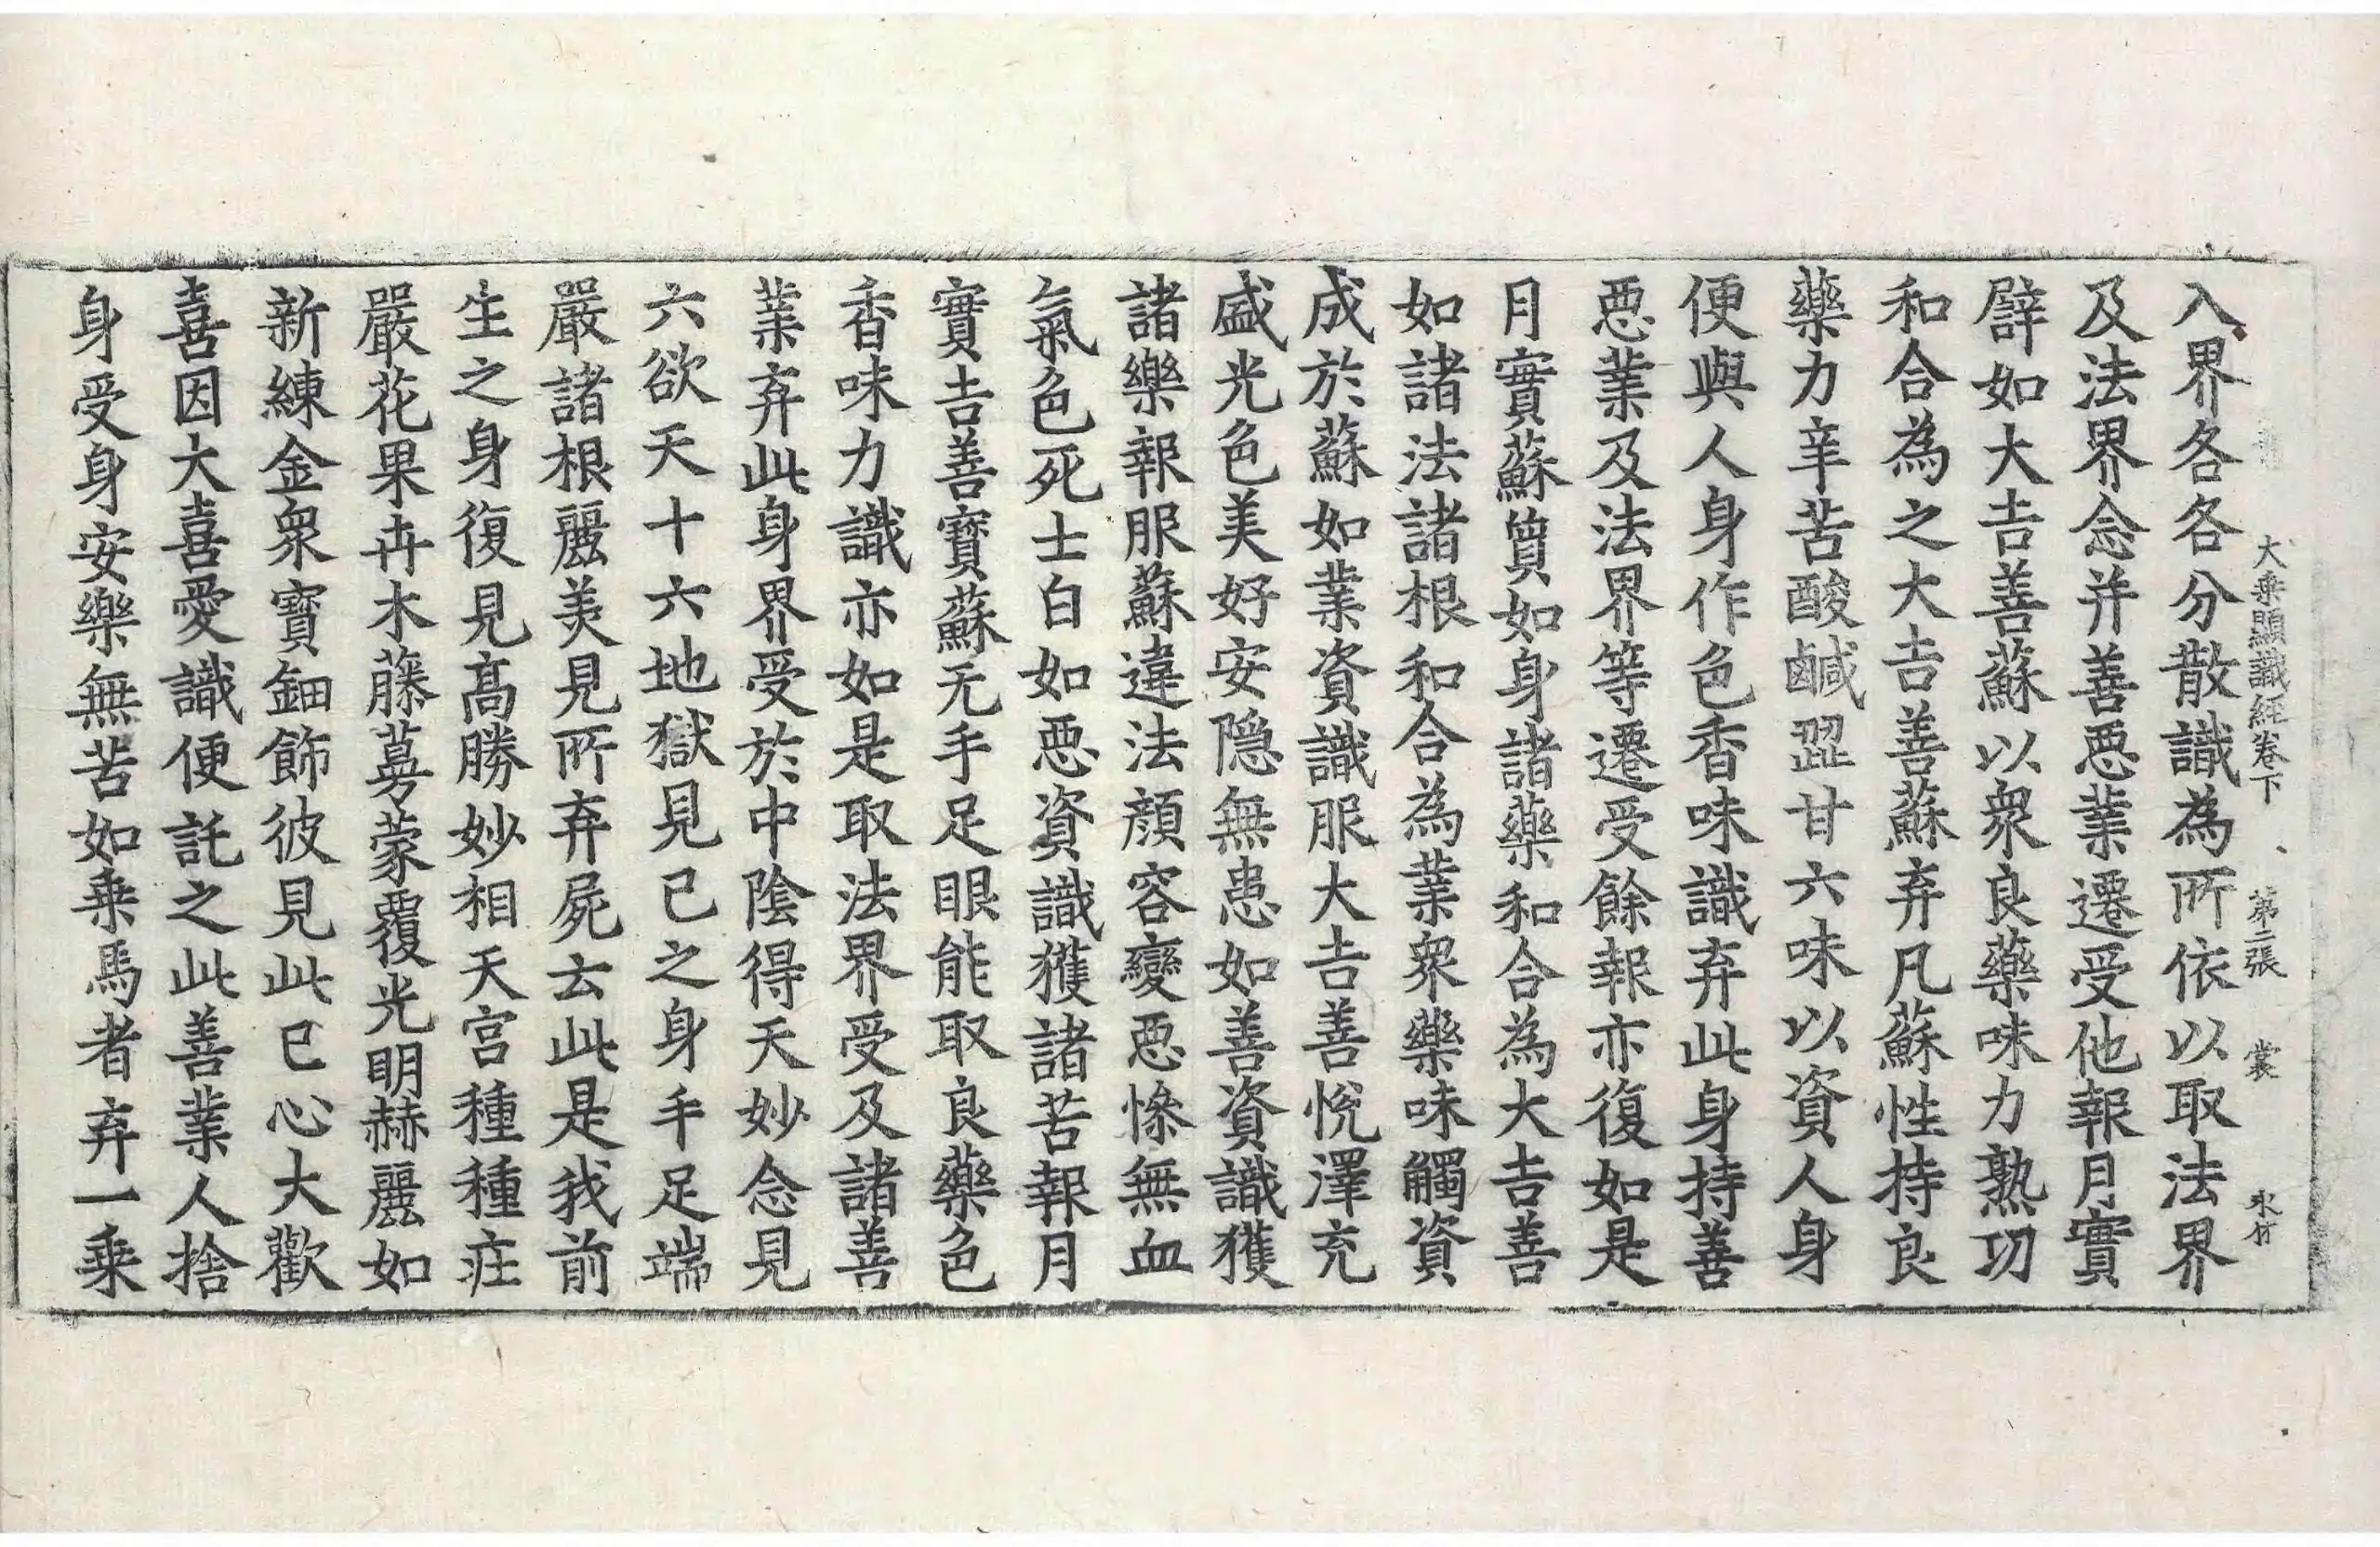 大乘顯識經卷下 第二張 裳
入界各各分散識為所依以取法界
及法界念并善惡業遷受他報月實
譬如大吉善蘇以衆良藥味力熟功
和合為之大吉善蘇弃凡蘇性持良
藥力辛苦酸鹹澀甘六味以資人身
便與人身作色香味識弃此身持善
惡業及法界等遷受餘報亦復如是
月實蘇質如身諸藥和合為大吉善
如諸法諸根和合為業衆藥味觸資
成於蘇如業資識服大吉善悅澤充
盛光色美好安隱無患如善資識獲
諸樂報服蘇違法顔容變惡慘無血
氣色死士白如惡資識獲諸苦報月
實吉善寶蘇无手足眼能取良藥色
香味力識亦如是取法界受及諸善
業弃此身界受於中陰得天妙念見
六欲天十六地獄見己之身手足端
嚴諸根麗美見所弃屍云此是我前
生之身復見高勝妙相天宮種種莊
嚴花果卉木藤蔓蒙覆光明赫麗如
新練金衆寶鈿飾彼見此已心大歡
喜因大喜愛識便託之此善業人捨
身受身安樂無苦如乘馬者弃一乘